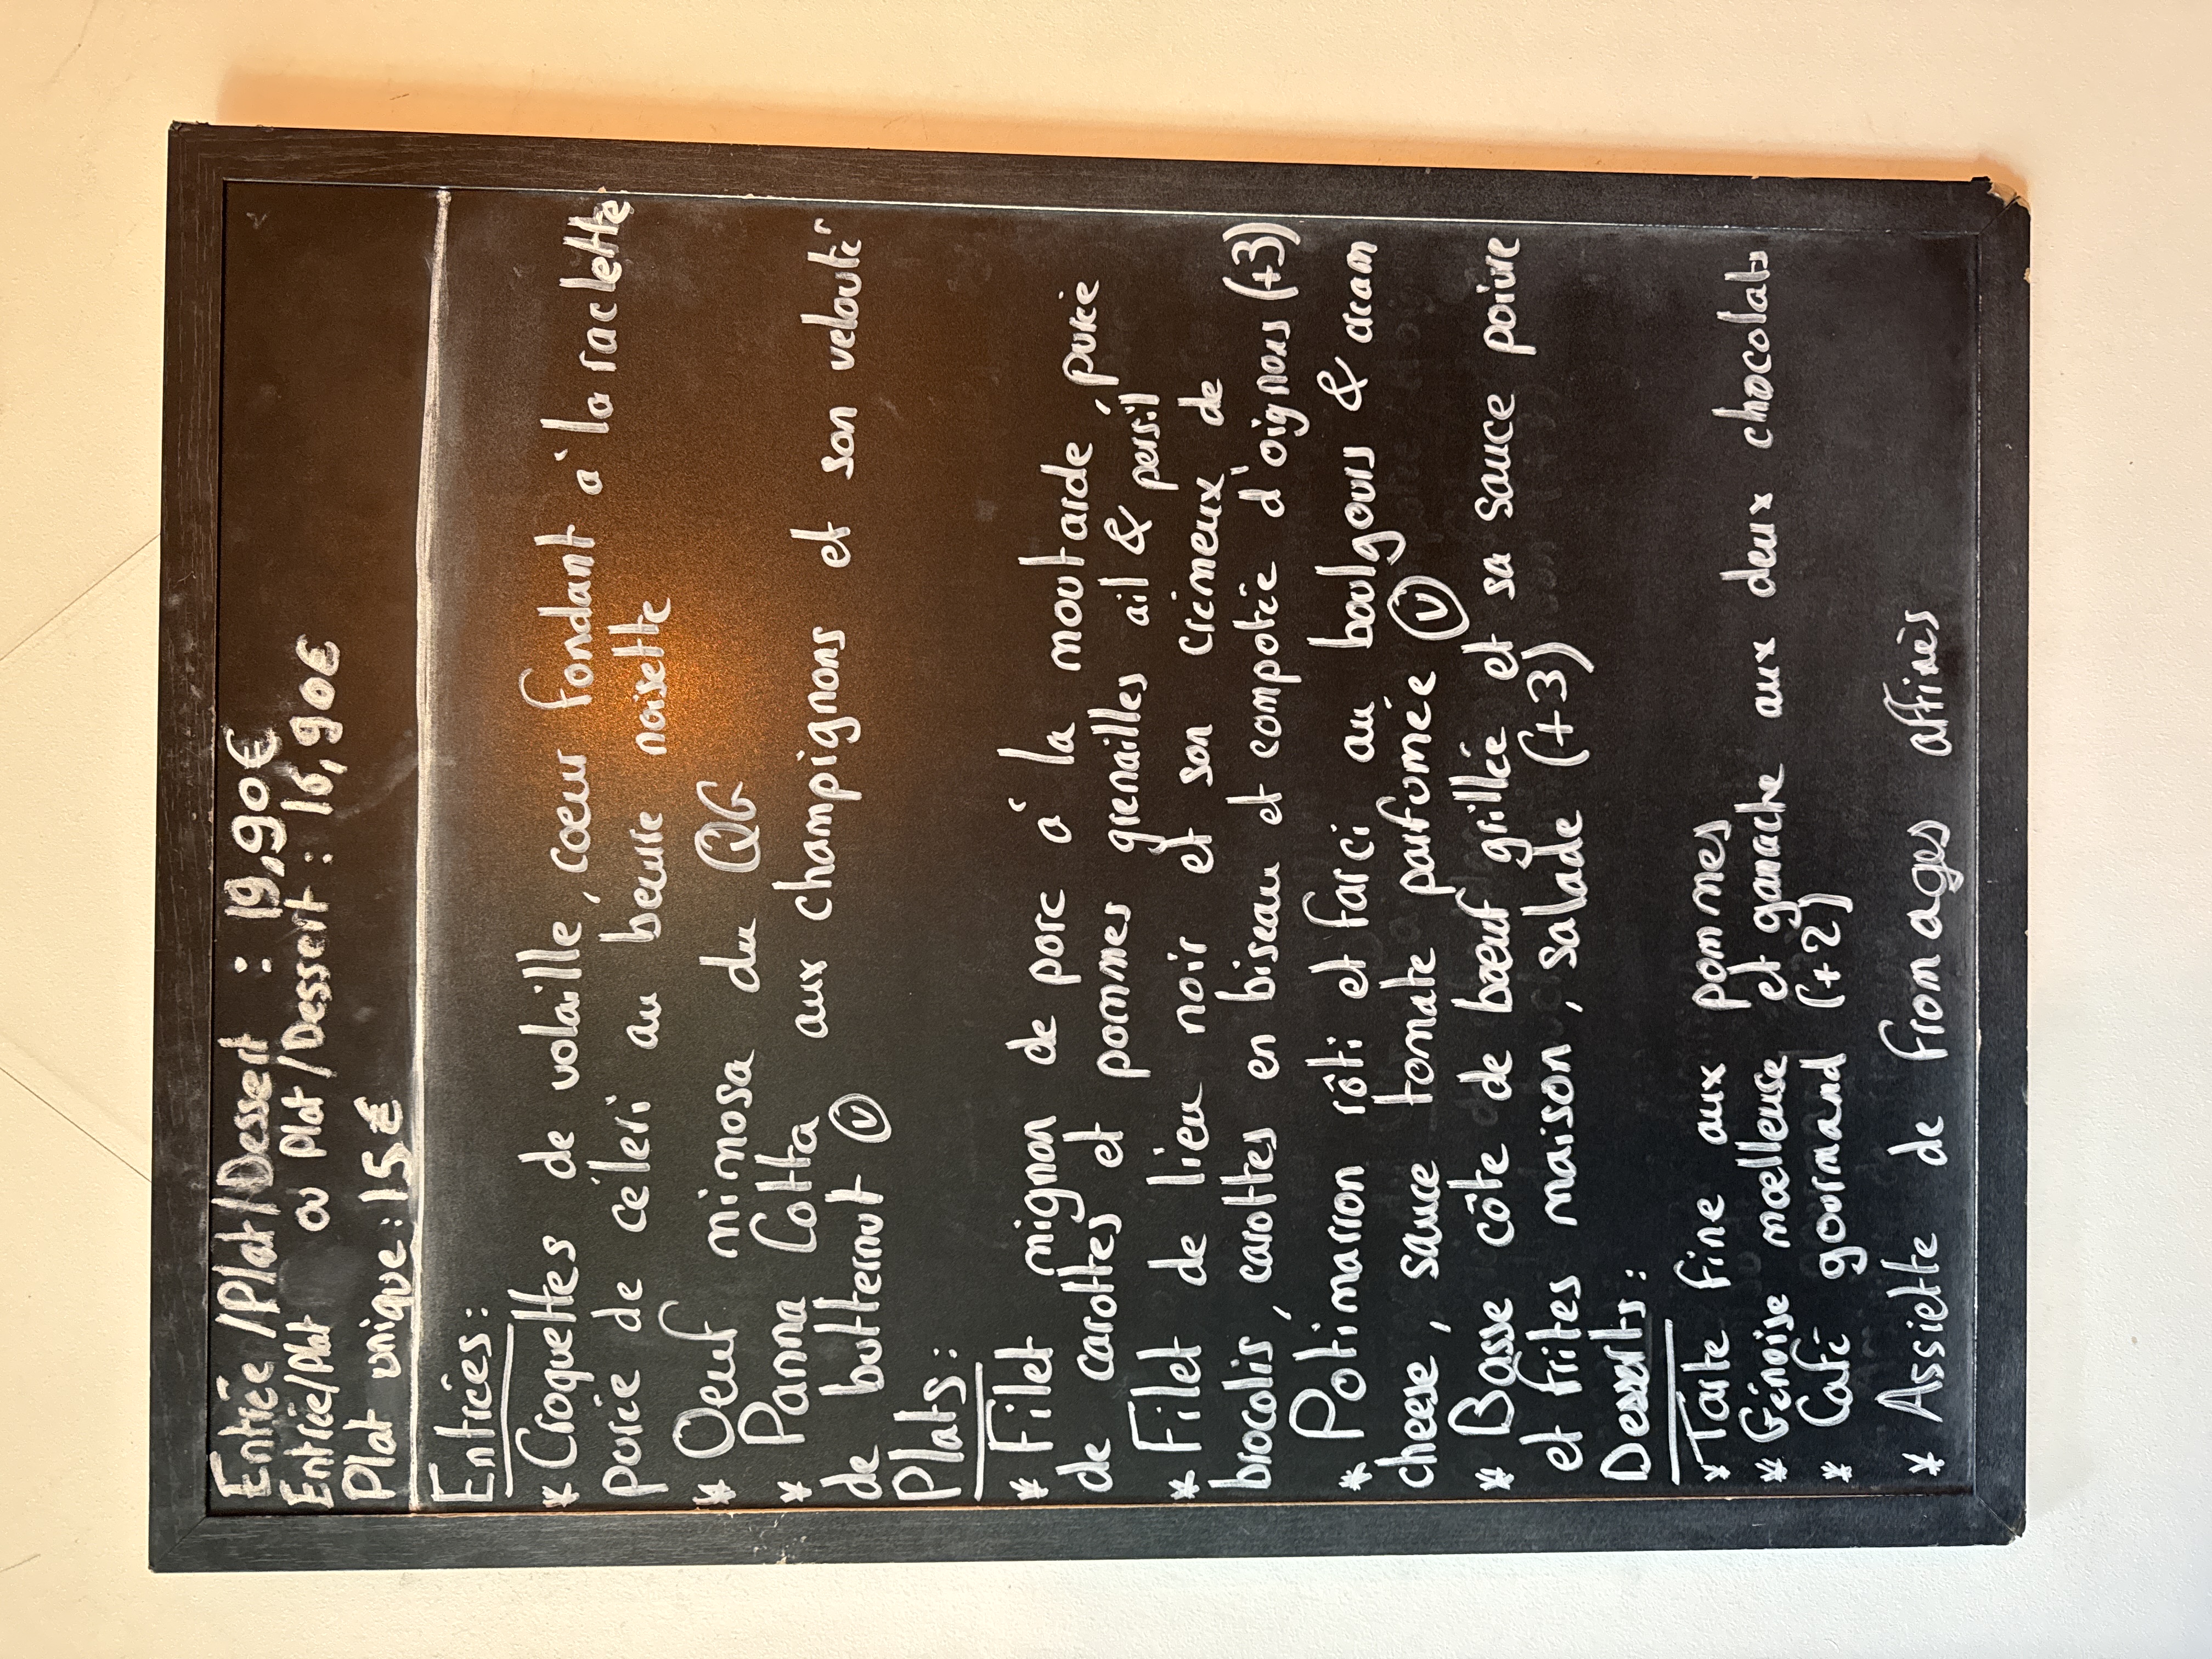 Entrée/Plat/Dessert : 19,90€
Entrée/Plat ou Plat/Dessert : 16,90€
Plat unique : 15€
Entrées :
* Croquettes de volaille, cœur fondant à la raclette
purée de céleri au beurre noisette
* Oeuf mimosa du QG
* Panna Cotta aux champignons et son velouté
de butternut Ⓥ
Plats :
* Filet mignon de porc à la moutarde, purée
de carottes et pommes grenailles ail & persil
* Filet de lieu noir et son crémeux de
brocolis, carottes en biseau et compotée d'oignons (+3)
* Potimarron rôti et farci au boulgours & cream
cheese, sauce tomate parfumée Ⓥ
* Basse côte de bœuf grillée et sa sauce poivre
et frites maison, salade (+3)
Desserts :
* Tarte fine aux pommes
* Génoise moelleuse et ganache aux deux chocolats
* Café gourmand (+2)
* Assiette de fromages affinés